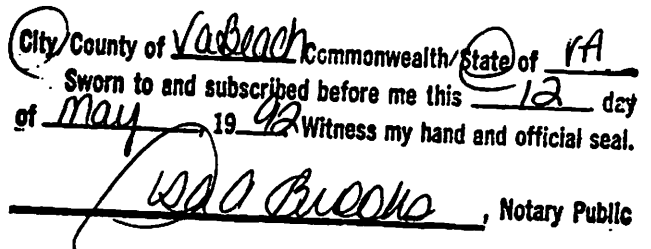 City/County of Va Beach Commonwealth/State of VA
Sworn to and subscribed before me this 12 day
of May, 1992. Witness my hand and official seal.
Lisa A Brooks, Notary Public